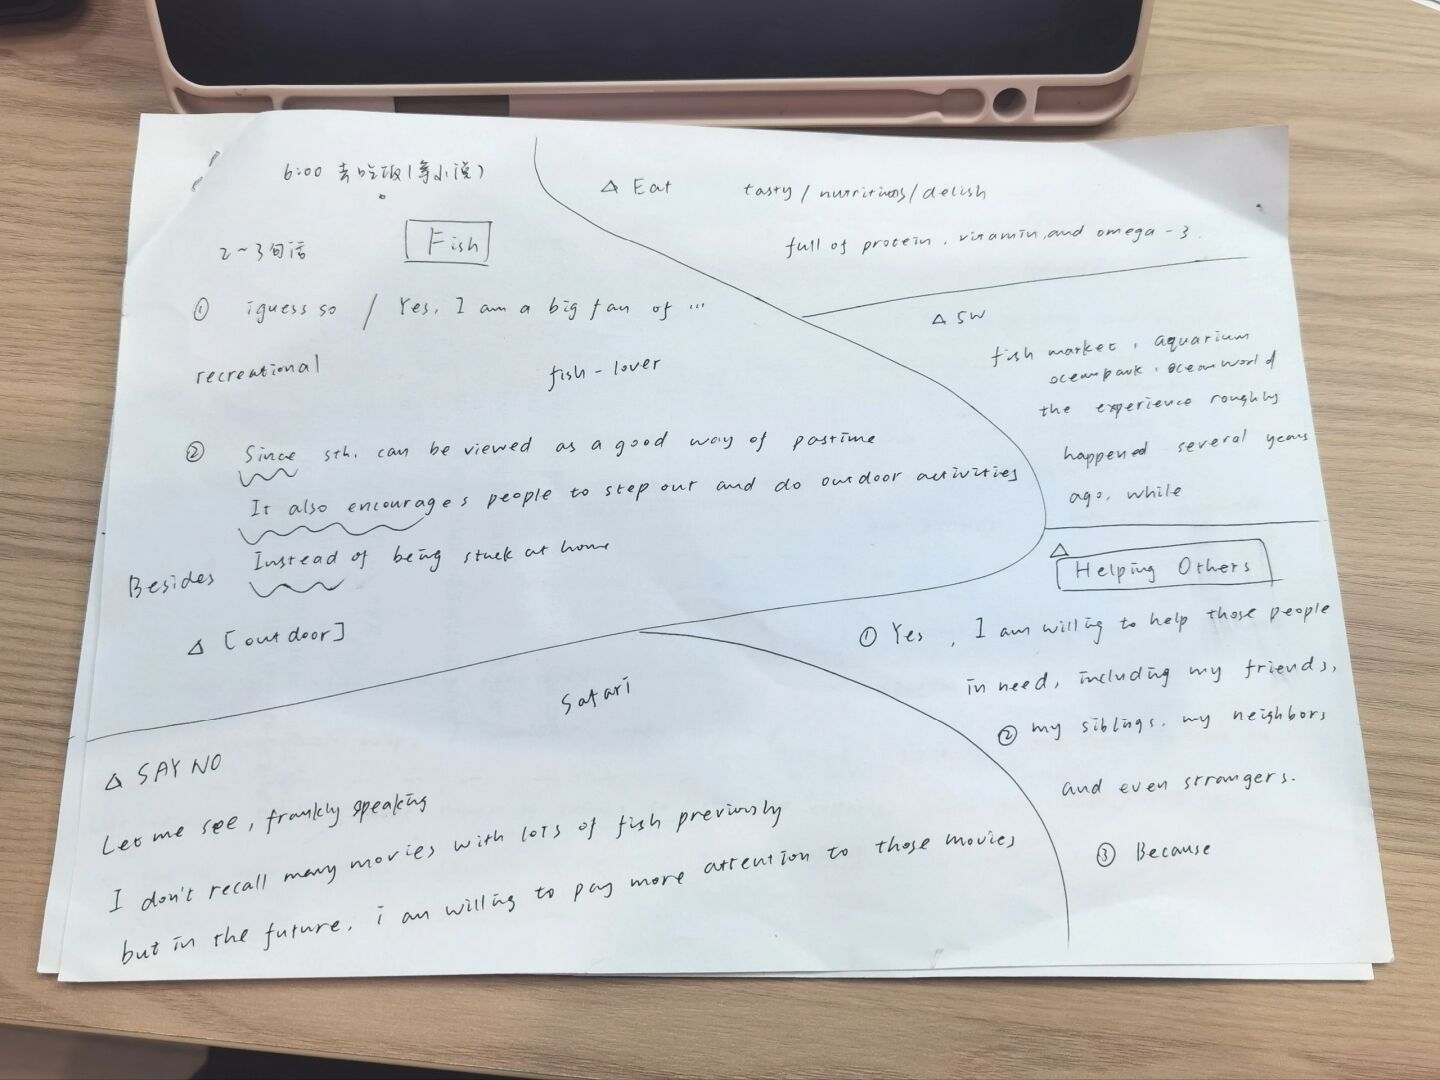 6:00 去吃饭(等小说)
2~3句话
Fish
① iguess so / Yes, I am a big fan of ...
recreational
fish-lover
② Since sth. can be viewed as a good way of pastime
It also encourages people to step out and do outdoor activities
Besides Instead of being stuck at home
△ [outdoor]
△ Eat tasty/nutritious/delish
full of protein, vitamin, and omega-3.
△ SW
fish market, aquarium
oceanpark, oceanworld
the experience roughly
happened several years
ago, while
△
Helping Others
① Yes, I am willing to help those people
in need, including my friends,
② my siblings, my neighbors
and even strangers.
③ Because
Safari
△ SAY NO
Let me see, frankly speaking
I don't recall many movies with lots of fish previously
but in the future, i am willing to pay more attention to those movies